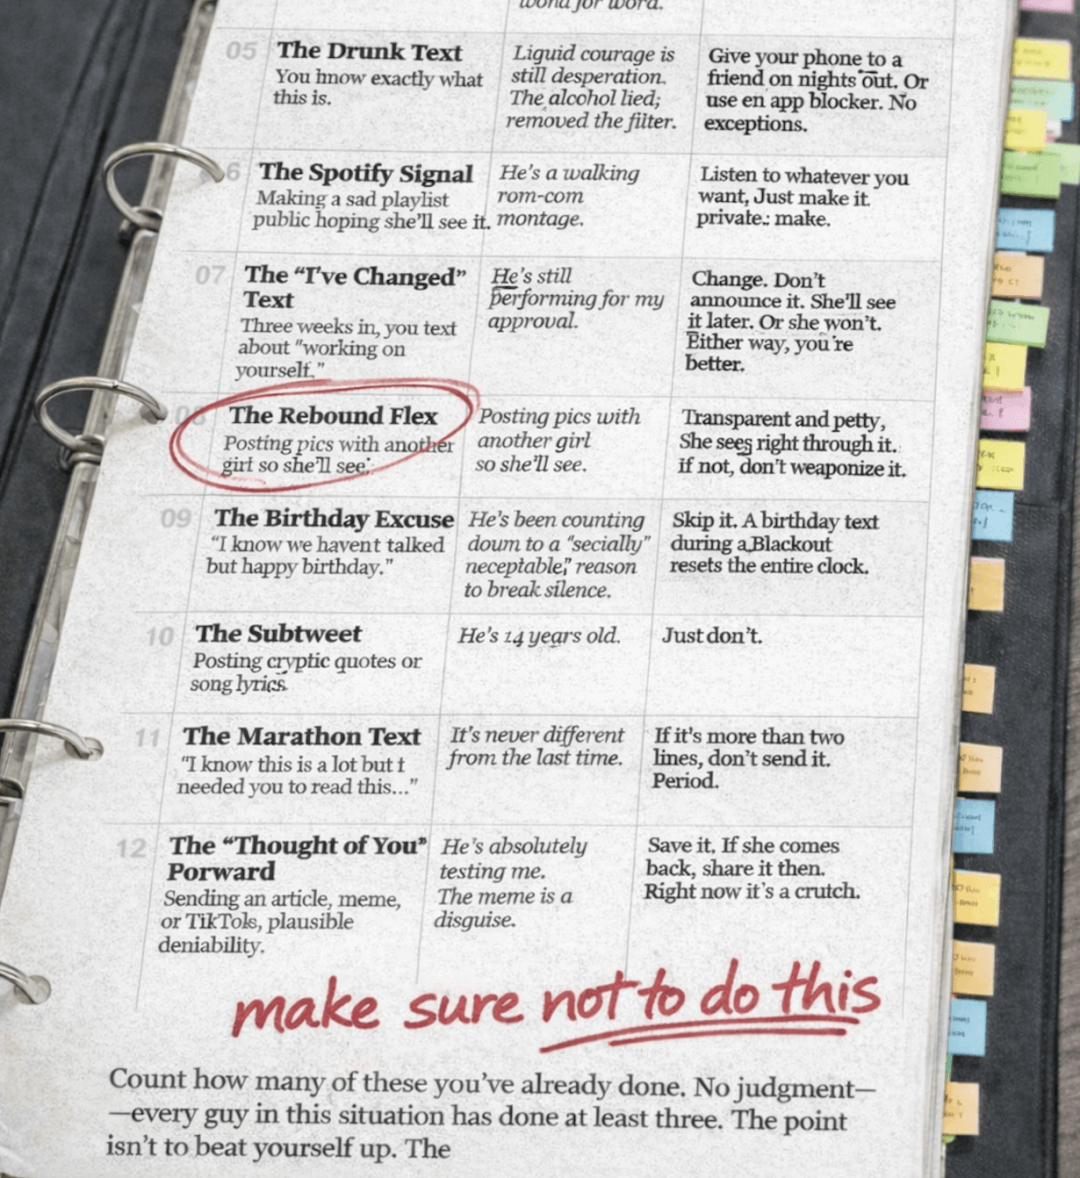 for word.
05
The Drunk Text
You hnow exactly what
this is.
Liquid courage is
still desperation.
The alcohol lied;
removed the filter.
Give your phone to a
friend on nights out. Or
use en app blocker. No
exceptions.
6
The Spotify Signal
Making a sad playlist
public hoping she'll see it.
He's a walking
rom-com
montage.
Listen to whatever you
want, Just make it
private.: make.
07
The “I've Changed”
Text
Three weeks in, you text
about "working on
yourself."
He's still
performing for my
approval.
Change. Don't
announce it. She'll see
it later. Or she won't.
Either way, you're
better.
The Rebound Flex
Posting pics with another
girl so she'll see.
Posting pics with
another girl
so she'll see.
Transparent and petty,
She sees right through it.
if not, don't weaponize it.
09
The Birthday Excuse
“I know we havent talked
but happy birthday.”
He's been counting
doum to a “socially”
neceptable," reason
to break silence.
Skip it. A birthday text
during a Blackout
resets the entire clock.
10
The Subtweet
Posting cryptic quotes or
song lyrics.
He's 14 years old.
Just don't.
11
The Marathon Text
“I know this is a lot but t
needed you to read this...”
It's never different
from the last time.
If it's more than two
lines, don't send it.
Period.
12
The “Thought of You”
Porward
Sending an article, meme,
or TikTols, plausible
deniability.
He's absolutely
testing me.
The meme is a
disguise.
Save it. If she comes
back, share it then.
Right now it's a crutch.
make sure not to do this
Count how many of these you've already done. No judgment—
—every guy in this situation has done at least three. The point
isn't to beat yourself up. The